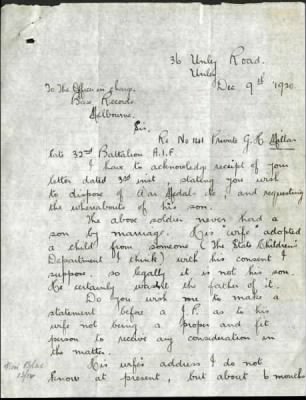 36 Unley Road.
Unley
Dec 9th 1920.
To The Officer in charge.
Base Records
Melbourne.
Sir,
Re No 1141 Private G. H. Millar
late 32nd Battalion A.I.F.
I have to acknowledge receipt of your
letter dated 3rd inst stating you wish
to dispose of War Medal etc, and requesting
the whereabouts of his son.
The above soldier never had a
son by marriage. His wife adopted
a child from someone (The State Children's
Department I think) with his consent I
suppose. so legally it is not his son.
He certainly wasn't the father of it.
Do you wish me to make a
statement before a J.P. as to his
wife not being a proper and fit
person to receive any consideration in
the matter.
His wife's address I do not
know at present, but about 6 months